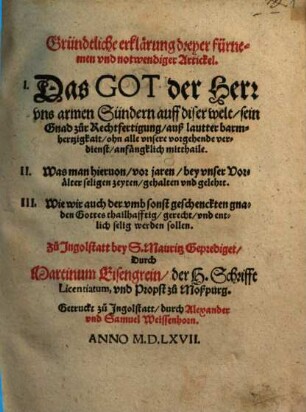 Gründeliche erklärung dreyer fürne-
men vnd notwendiger Artickel.
I. Das GOT der Herr
vns armen Sündern auff diser welt/ sein
Gnad zür Rechtfertigung/ auß lautter barm-
hertzigkait/ ohn alle vnsere vorgehende ver-
dienst/ anfängklich mitthaile.
II. Was man hieuon/ vor jaren/ bey vnser Vor-
älter seligen zeyten/ gehalten vnd gelehrt.
III. Wie wir auch der vmb sonst geschenckten gna-
den Gottes thailhafftig/ gerecht/ vnd ent-
lich selig werden sollen.
Zü Ingolstatt bey S. Mauritz Geprediget/
Durch
Martinum Eisengrein/ der H. Schrifft
Licentiatum, vnd Propst zü Moßpurg.
Getruckt zü Ingolstatt/ durch Alexander
vnd Samuel Weissenhorn.
ANNO M.D.LXVII.